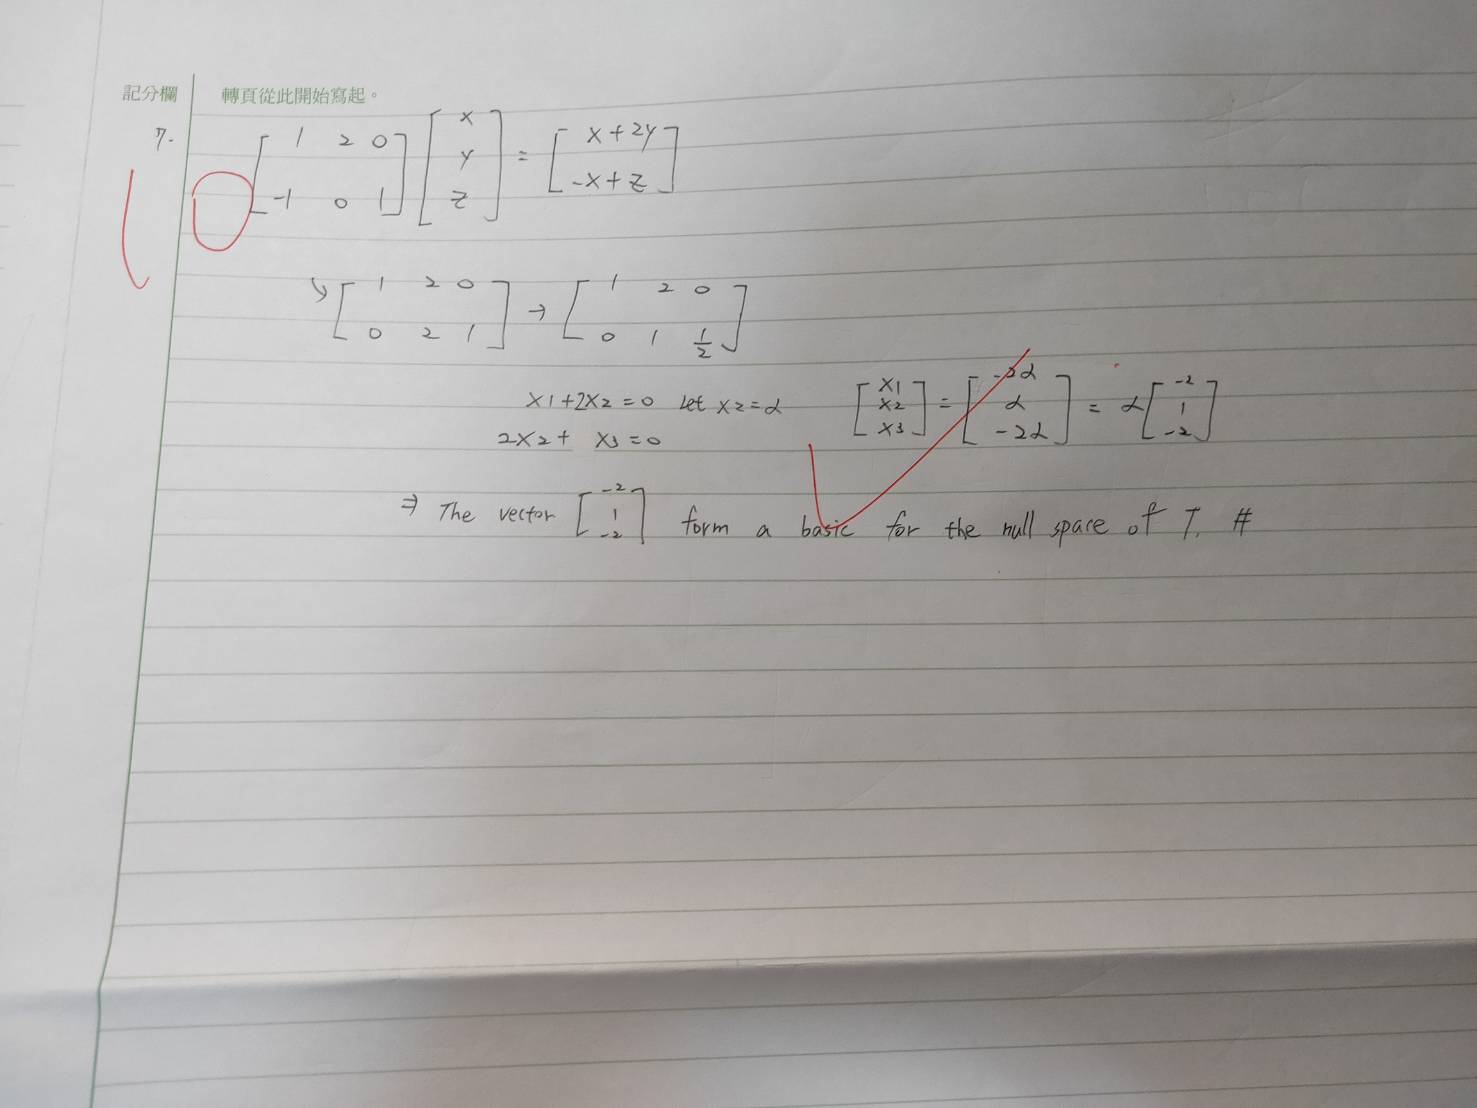 記分欄 轉頁從此開始寫起。
7. [1 2 0; -1 0 1] [x; y; z] = [x+2y; -x+z]
↘ [1 2 0; 0 2 1] → [1 2 0; 0 1 1/2]
x1+2x2=0 let x2=α [x1; x2; x3] = [-2α; α; -2α] = α[-2; 1; -2]
2x2+ x3=0
⇒ The vector [-2; 1; -2] form a basic for the null space of T. #